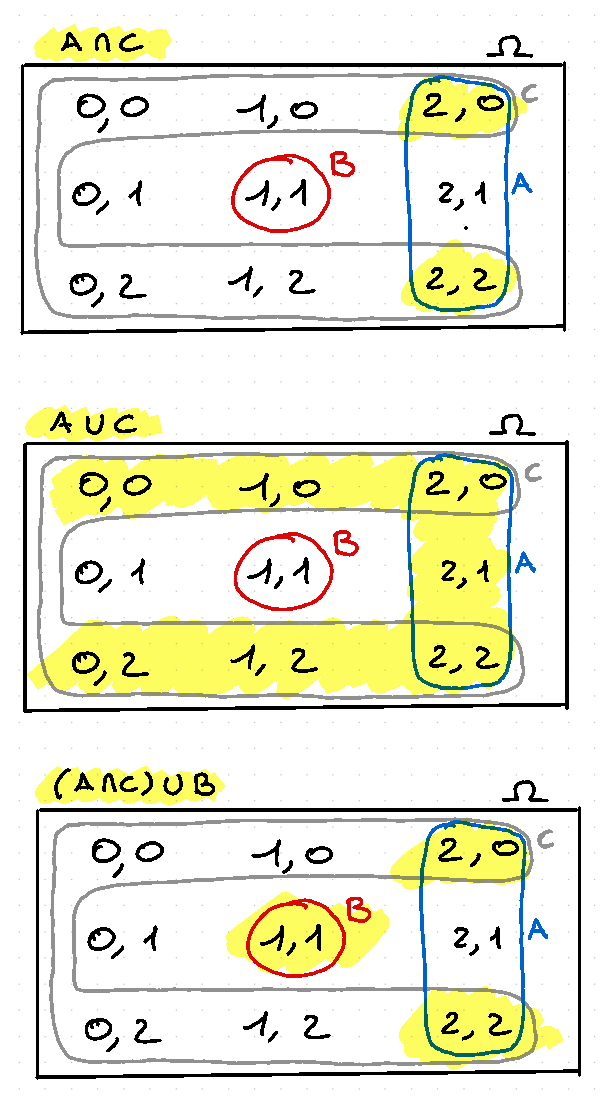 A∩C Ω
0,0 1,0 2,0 C
0,1 1,1 B 2,1 A
0,2 1,2 2,2
A∪C Ω
0,0 1,0 2,0 C
0,1 1,1 B 2,1 A
0,2 1,2 2,2
(A∩C)∪B Ω
0,0 1,0 2,0 C
0,1 1,1 B 2,1 A
0,2 1,2 2,2